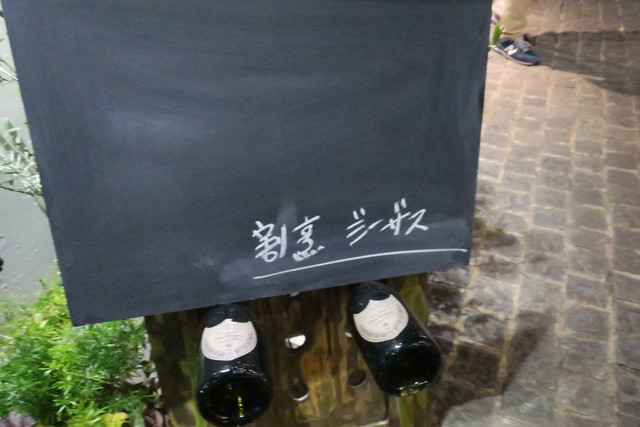 割烹 ジーザス